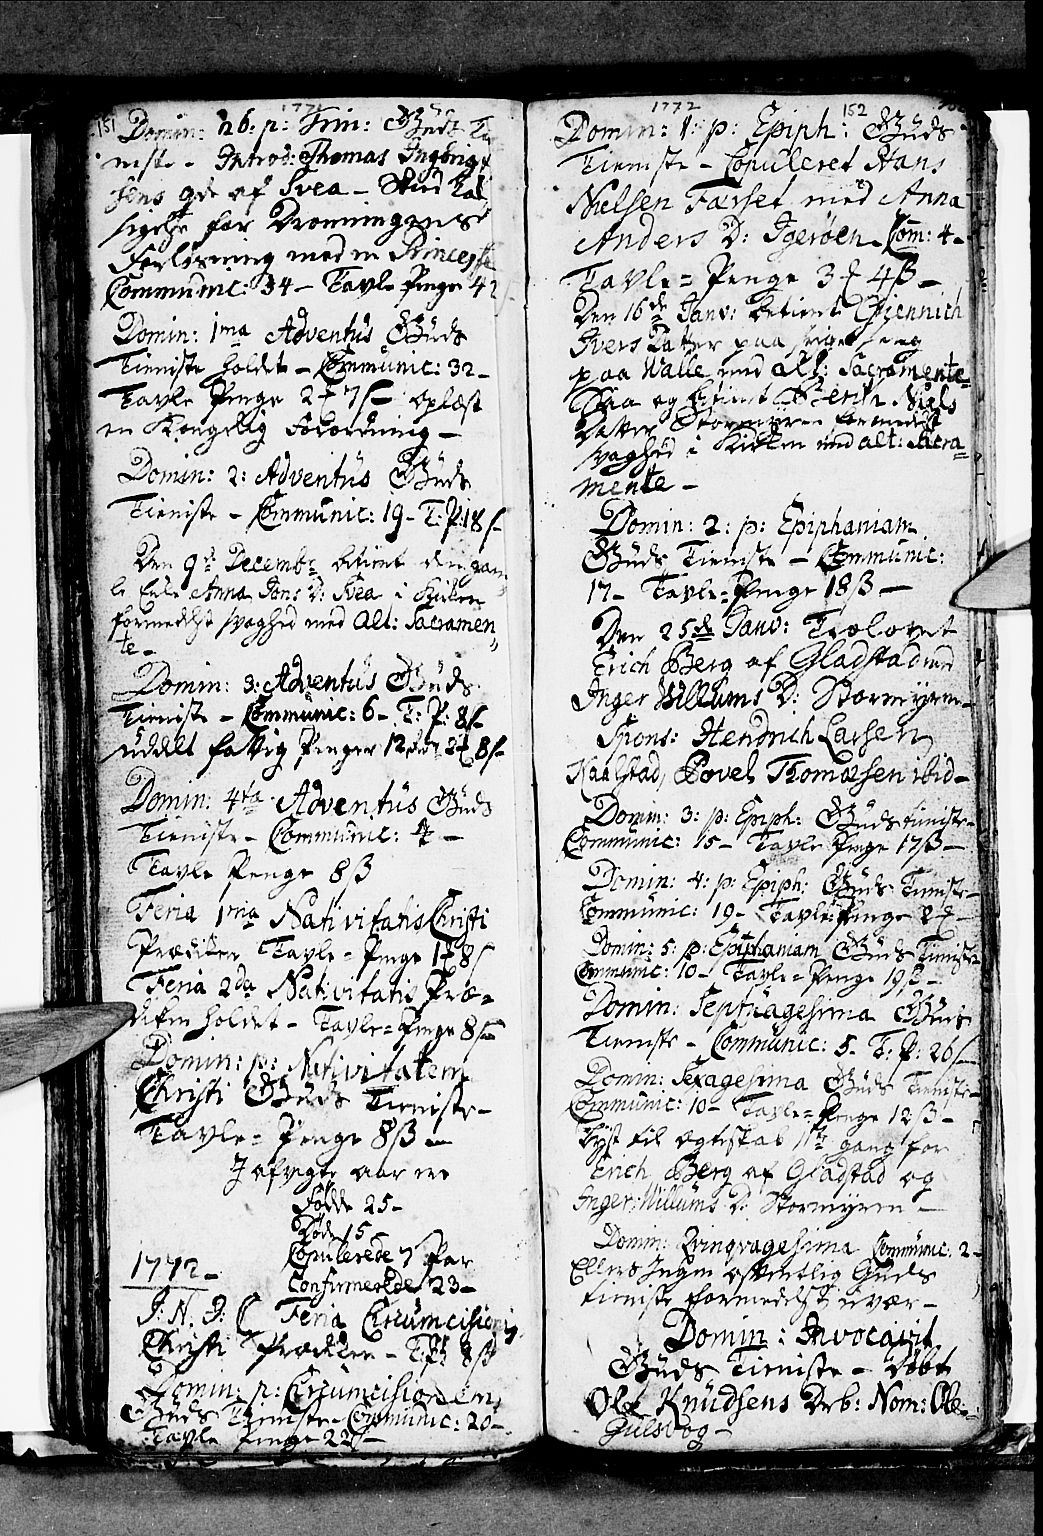 151
1771
Domin: 26: p: Trin: Guds Tie
niste - Introd: Thomas Ingbrigt
sens qde af Svea - Skeed Tak
sigelse for Dronningens
Forløsning med en Princesse
Communic: 34 - Tavle Penge 42
Domin: 1ma Adventus Guds
Tieniste holdet - Communic: 32 -
Tavle Penge 2 7 s - oplæst
en Kongelig Forordning -
Domin: 2: Adventus Guds
Tieniste - Communic: 19 - T: P: 18 s -
Den 9de Decembr betient den gam
le Enke Anna Jons D: Svea i Kirken
formedelst svaghed med Alt: Sacramen
te -
Domin: 3: Adventus Guds
Tieniste - Communic: 6 - T: P: 8 s
uddelt fattig Penger 12 8 s -
Domin: 4ta Adventus Guds
Tieniste - Communic: 4 -
Tavle Penge 8 ß
Feria 1ma Nativitatis Christi
Prædiken Tavle = Penge 1 8 s
Feria 2da Nativitatis Præ =
diken holdet - Tavle = Penge 8 s
Domin: p: Nativitatem
Christi Guds Tieniste -
Tavle = Penge 8 ß -
I afvigte aar ere
Fødde 25 -
Døde 15
Copulerede 7 Par
Confirmerede 23 -
1772 -
I: N: J: Feria Circumcisionis
Christi Prædiken - T: P: 8 ß
Domin: p: Circumcisionem
Guds Tieniste - Communic: 20 -
Tavle Penge 22 s -
1772
152
Domin: 1: p: Epiph: Guds
Tieniste - Copuleret Hans
Nielsen Farset med Anna
Anders D: Igerøen - Com: 4 -
Tavle = Penge 3 4 ß -
Den 16de Janv: betient Giennich
Ivers Datter paa Siige Seng
paa Walle med alt: Sacramente
Saa og betient Berith Niels
Datter Stormyren formedelst
svaghed i Kirken med alt: Sacra
mente -
Domin: 2: p: Epiphaniam
Guds Tieniste - Communic:
17 - Tavle = Penge 18 ß -
Den 25de Janv: Trolovet
Erich Berg af Gladstad med
Inger Willums D: Stormyren -
Spons: Hendrich Larsen
Kaalstad, Povel Thomæsen ibid -
Domin: 3: p: Epiph: Guds tieniste -
Communic: 15 - Tavle Penge 17 ß -
Domin: 4: p: Epiph: Guds Tieniste -
Communic: 19 - Tavle Penge 2 -
Domin: 5: p: Epiphaniam Guds Tieniste -
Communic: 10 - Tavle = Penge 19 ß -
Domin: Septuagesima Guds
Tieniste - Communic: 5 - T: P: 26 s -
Domin: Sexagesima Guds Tieniste -
Communic: 10 - Tavle = Penge 12 ß -
Lyst til Egteskab 1ste gang for
Erich Berg af Gladstad og
Inger Willums D: Stormyren -
Domin: Qvinqvagesima Communic: 2 -
Ellers Ingen offentlig Guds
tieniste formedelst uvær -
Domin: Invocavit
Guds Tieniste - døbt
Ole Knudsens Drb: Nom: Ole
Gulsvog -